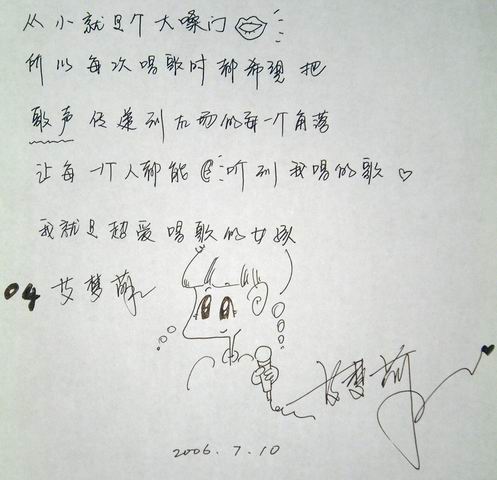 从小就是个大嗓门
所以每次唱歌时都希望把
歌声传递到在场的每一个角落
让每一个人都能听到我唱的歌♡
我就是超爱唱歌的女孩
04 艾梦萌
艾梦萌
2006.7.10